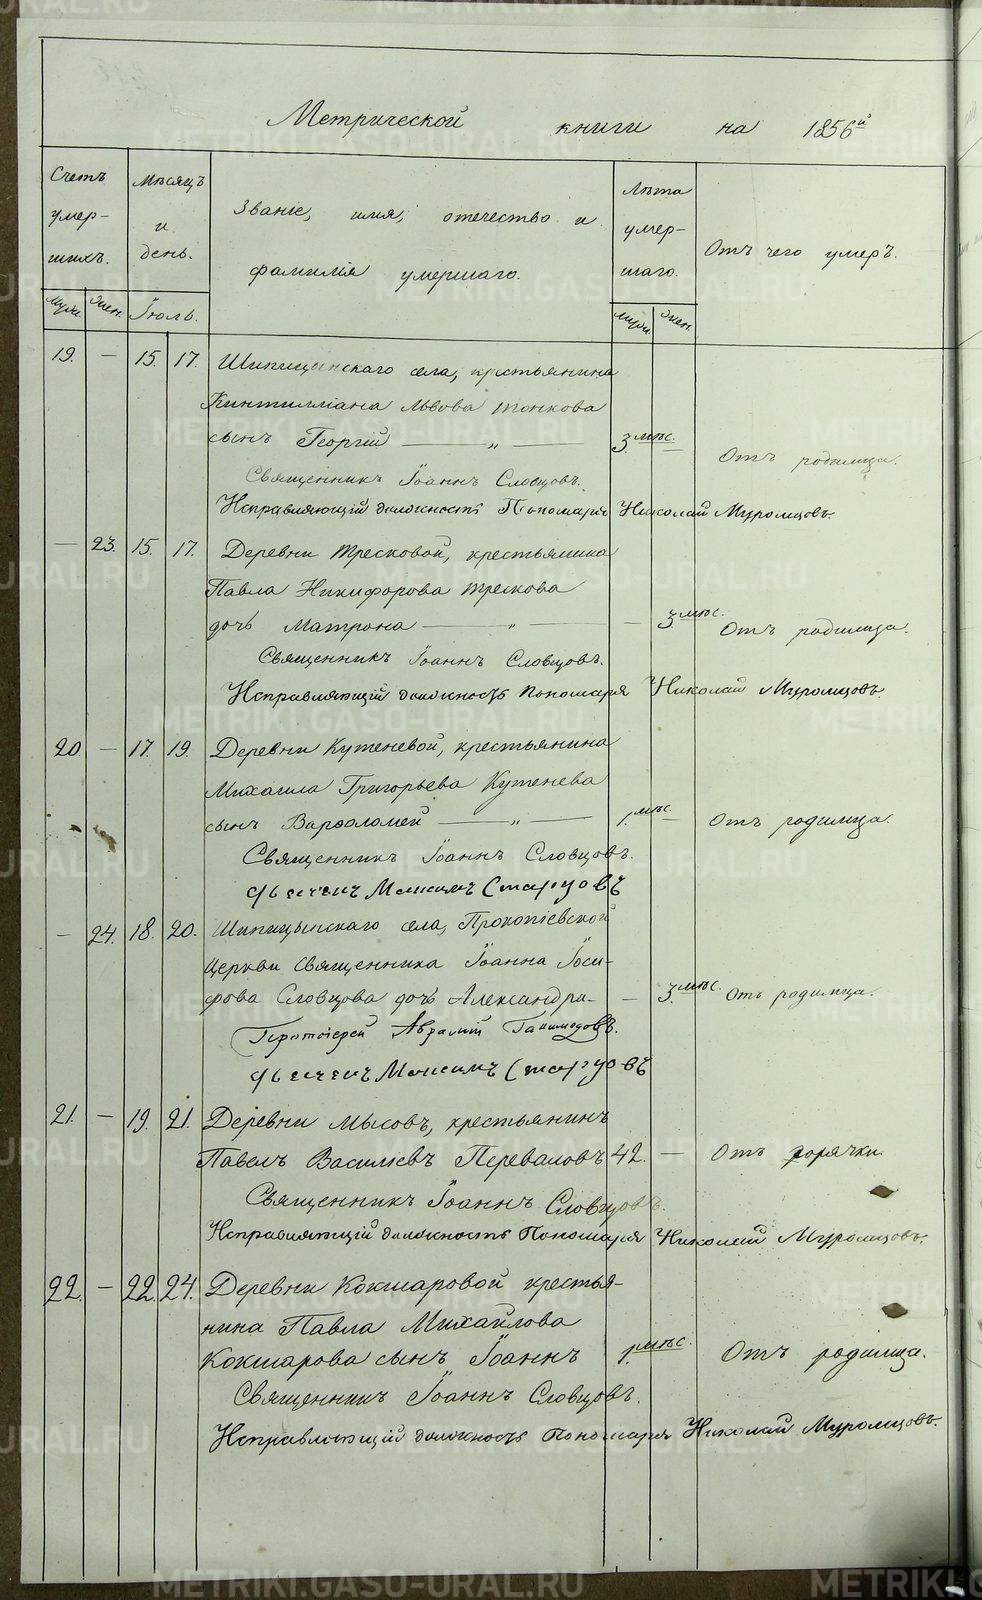 Метрической книги на 1856й
Счетъ умер- шихъ.
Мѣсяцъ и день.
Званіе, имя, отечество и
фамилія умершаго.
Лѣта умер- шаго.
Отъ чего умеръ.
Муж. Жен. Іюль. Муж. Жен.
19. — 15. 17. Шипицынскаго села, крестьянина
Кинтиллиана Львова Тонкова
сынъ Георгій — „ — 3 мѣс. — Отъ родимца.
Священникъ Іоаннъ Словцовъ.
Исправляющій должность Пономаря Николай Муромцовъ.
— 23. 15. 17. Деревни Тресковой, крестьянина
Павла Никифорова Трескова
дочь Матрона — „ — — 3 мѣс. Отъ родимца.
Священникъ Іоаннъ Словцовъ.
Исправляющій должность Пономаря Николай Муромцовъ.
20 — 17. 19. Деревни Кутеневой, крестьянина
Михаила Григорьева Кутенева
сынъ Варѳоломей — „ — 1. мѣс. — Отъ родимца.
Священникъ Іоаннъ Словцовъ.
Максимъ Старцовъ
— 24. 18. 20. Шипицынскаго села, Прокопіевской
Церкви священника Іоанна Іоси-
фова Словцова дочь Александра — 3. мѣс. Отъ родимца.
Протоіерей Авраамій
Максимъ Старцовъ
21. — 19. 21. Деревни Мысовъ, крестьянинъ
Павелъ Василіевъ Переваловъ 42. — Отъ горячки.
Священникъ Іоаннъ Словцовъ.
Исправляющій должность Пономаря Николай Муромцовъ.
22. — 22. 24. Деревни Кокшаровой крестья-
нина Павла Михайлова
Кокшарова сынъ Іоаннъ 1. мѣс. Отъ родимца.
Священникъ Іоаннъ Словцовъ.
Исправляющій должность Пономаря Николай Муромцовъ.
METRIKI.GASO-URAL.RU